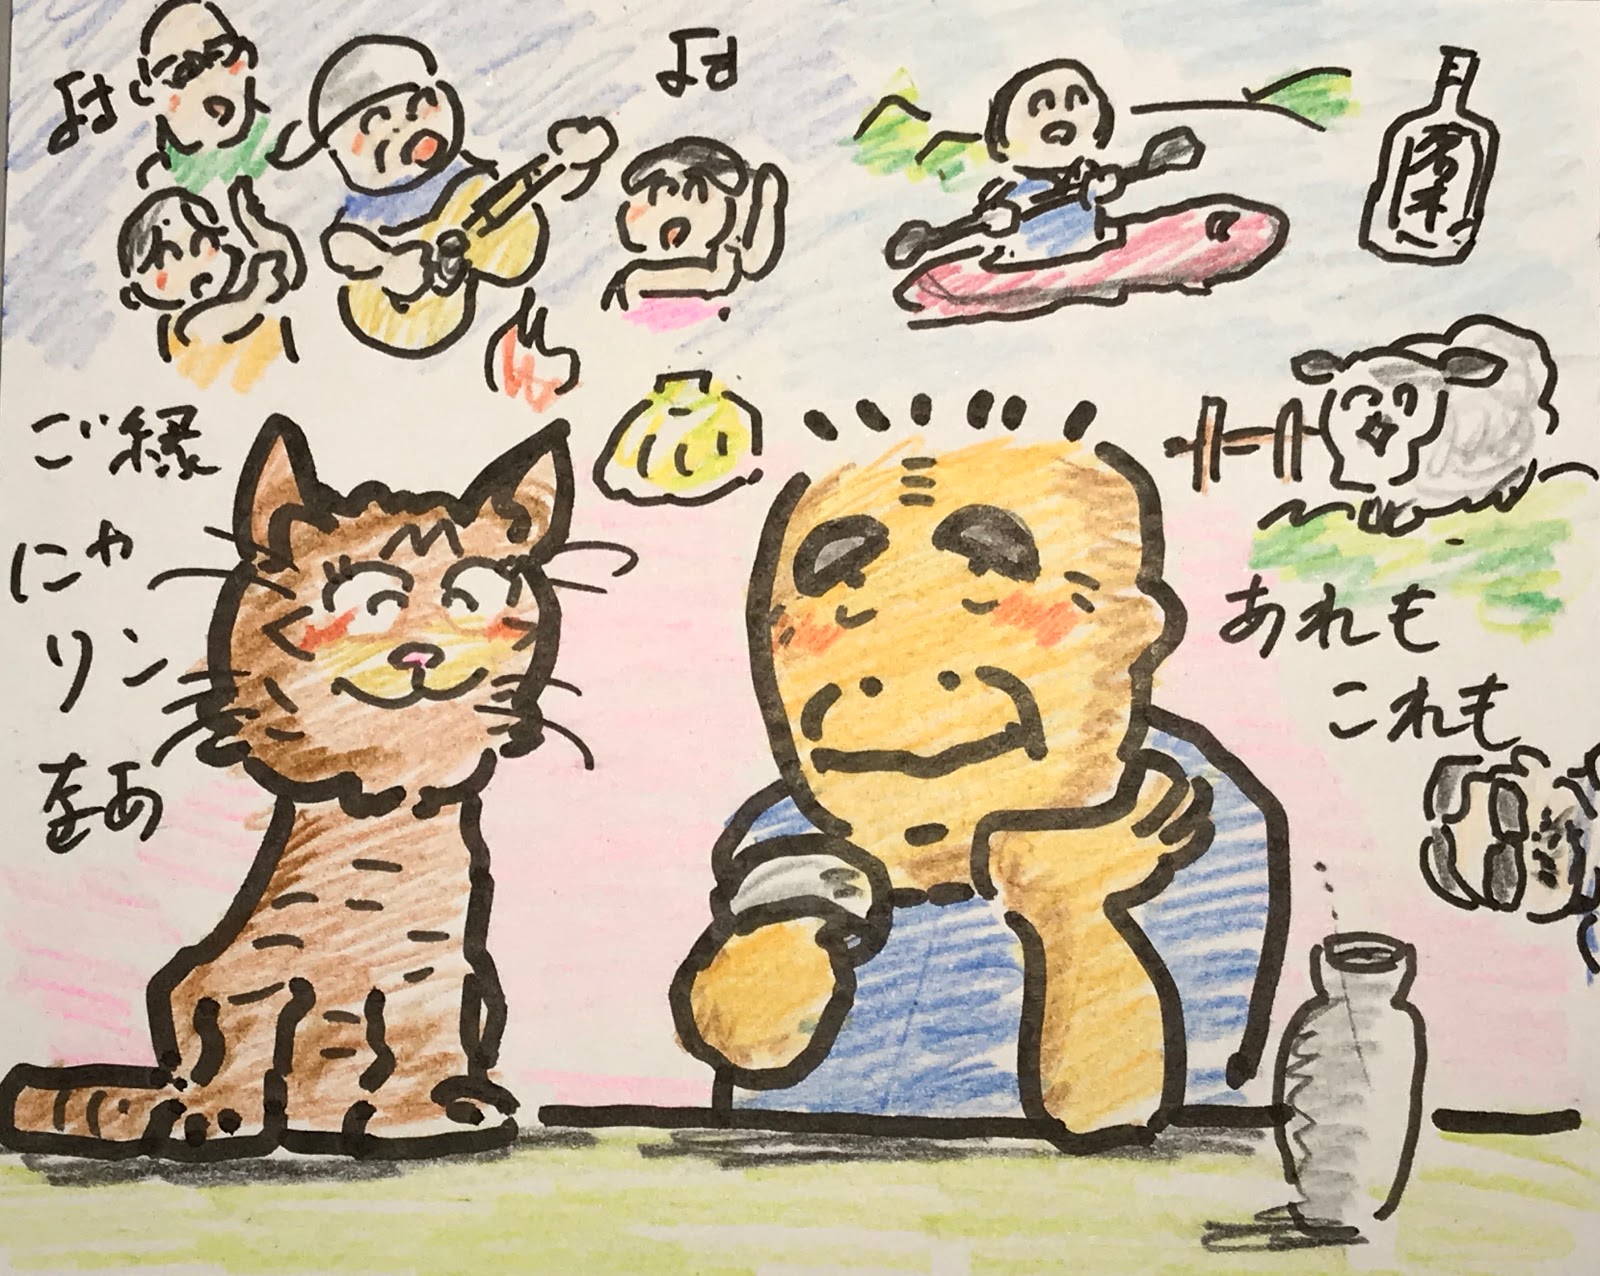 ご縁
にゃ
リン
なあ
あれも
これも